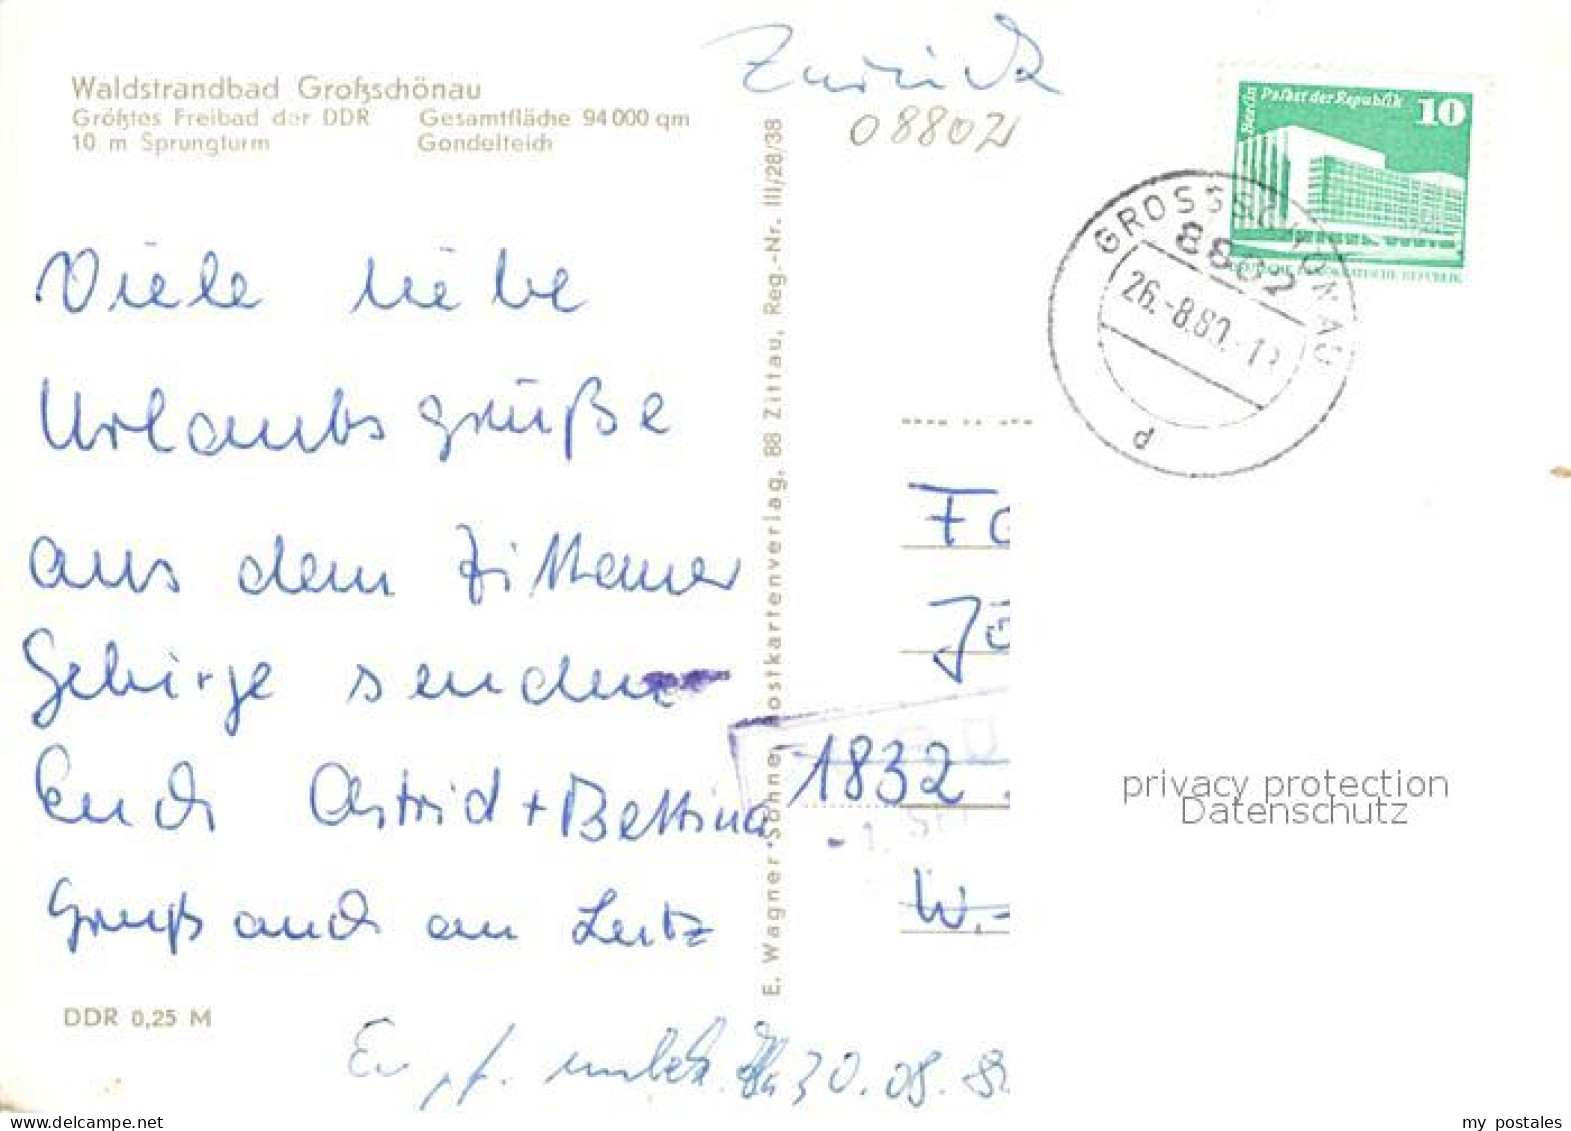 Waldstrandbad Großschönau
Größtes Freibad der DDR Gesamtfläche 94 000 qm
10 m Sprungturm Gondelteich
Zurück
08802
Berlin Palast der Republik 10
DEUTSCHE DEMOKRATISCHE REPUBLIK
GROSSSCHÖNAU
8802
26.-8.80.-1
d
Viele liebe
Urlaubsgrüße
aus dem Zittauer
Gebirge senden
Euch Astrid + Bettina
Gruß auch an Lutz
E. Wagner Söhne, Postkartenverlag, 88 Zittau, Reg.-Nr. III/28/38
1832
W.-
DDR 0,25 M
Empf. unbek. 30.08.
privacy protection
Datenschutz
my postales